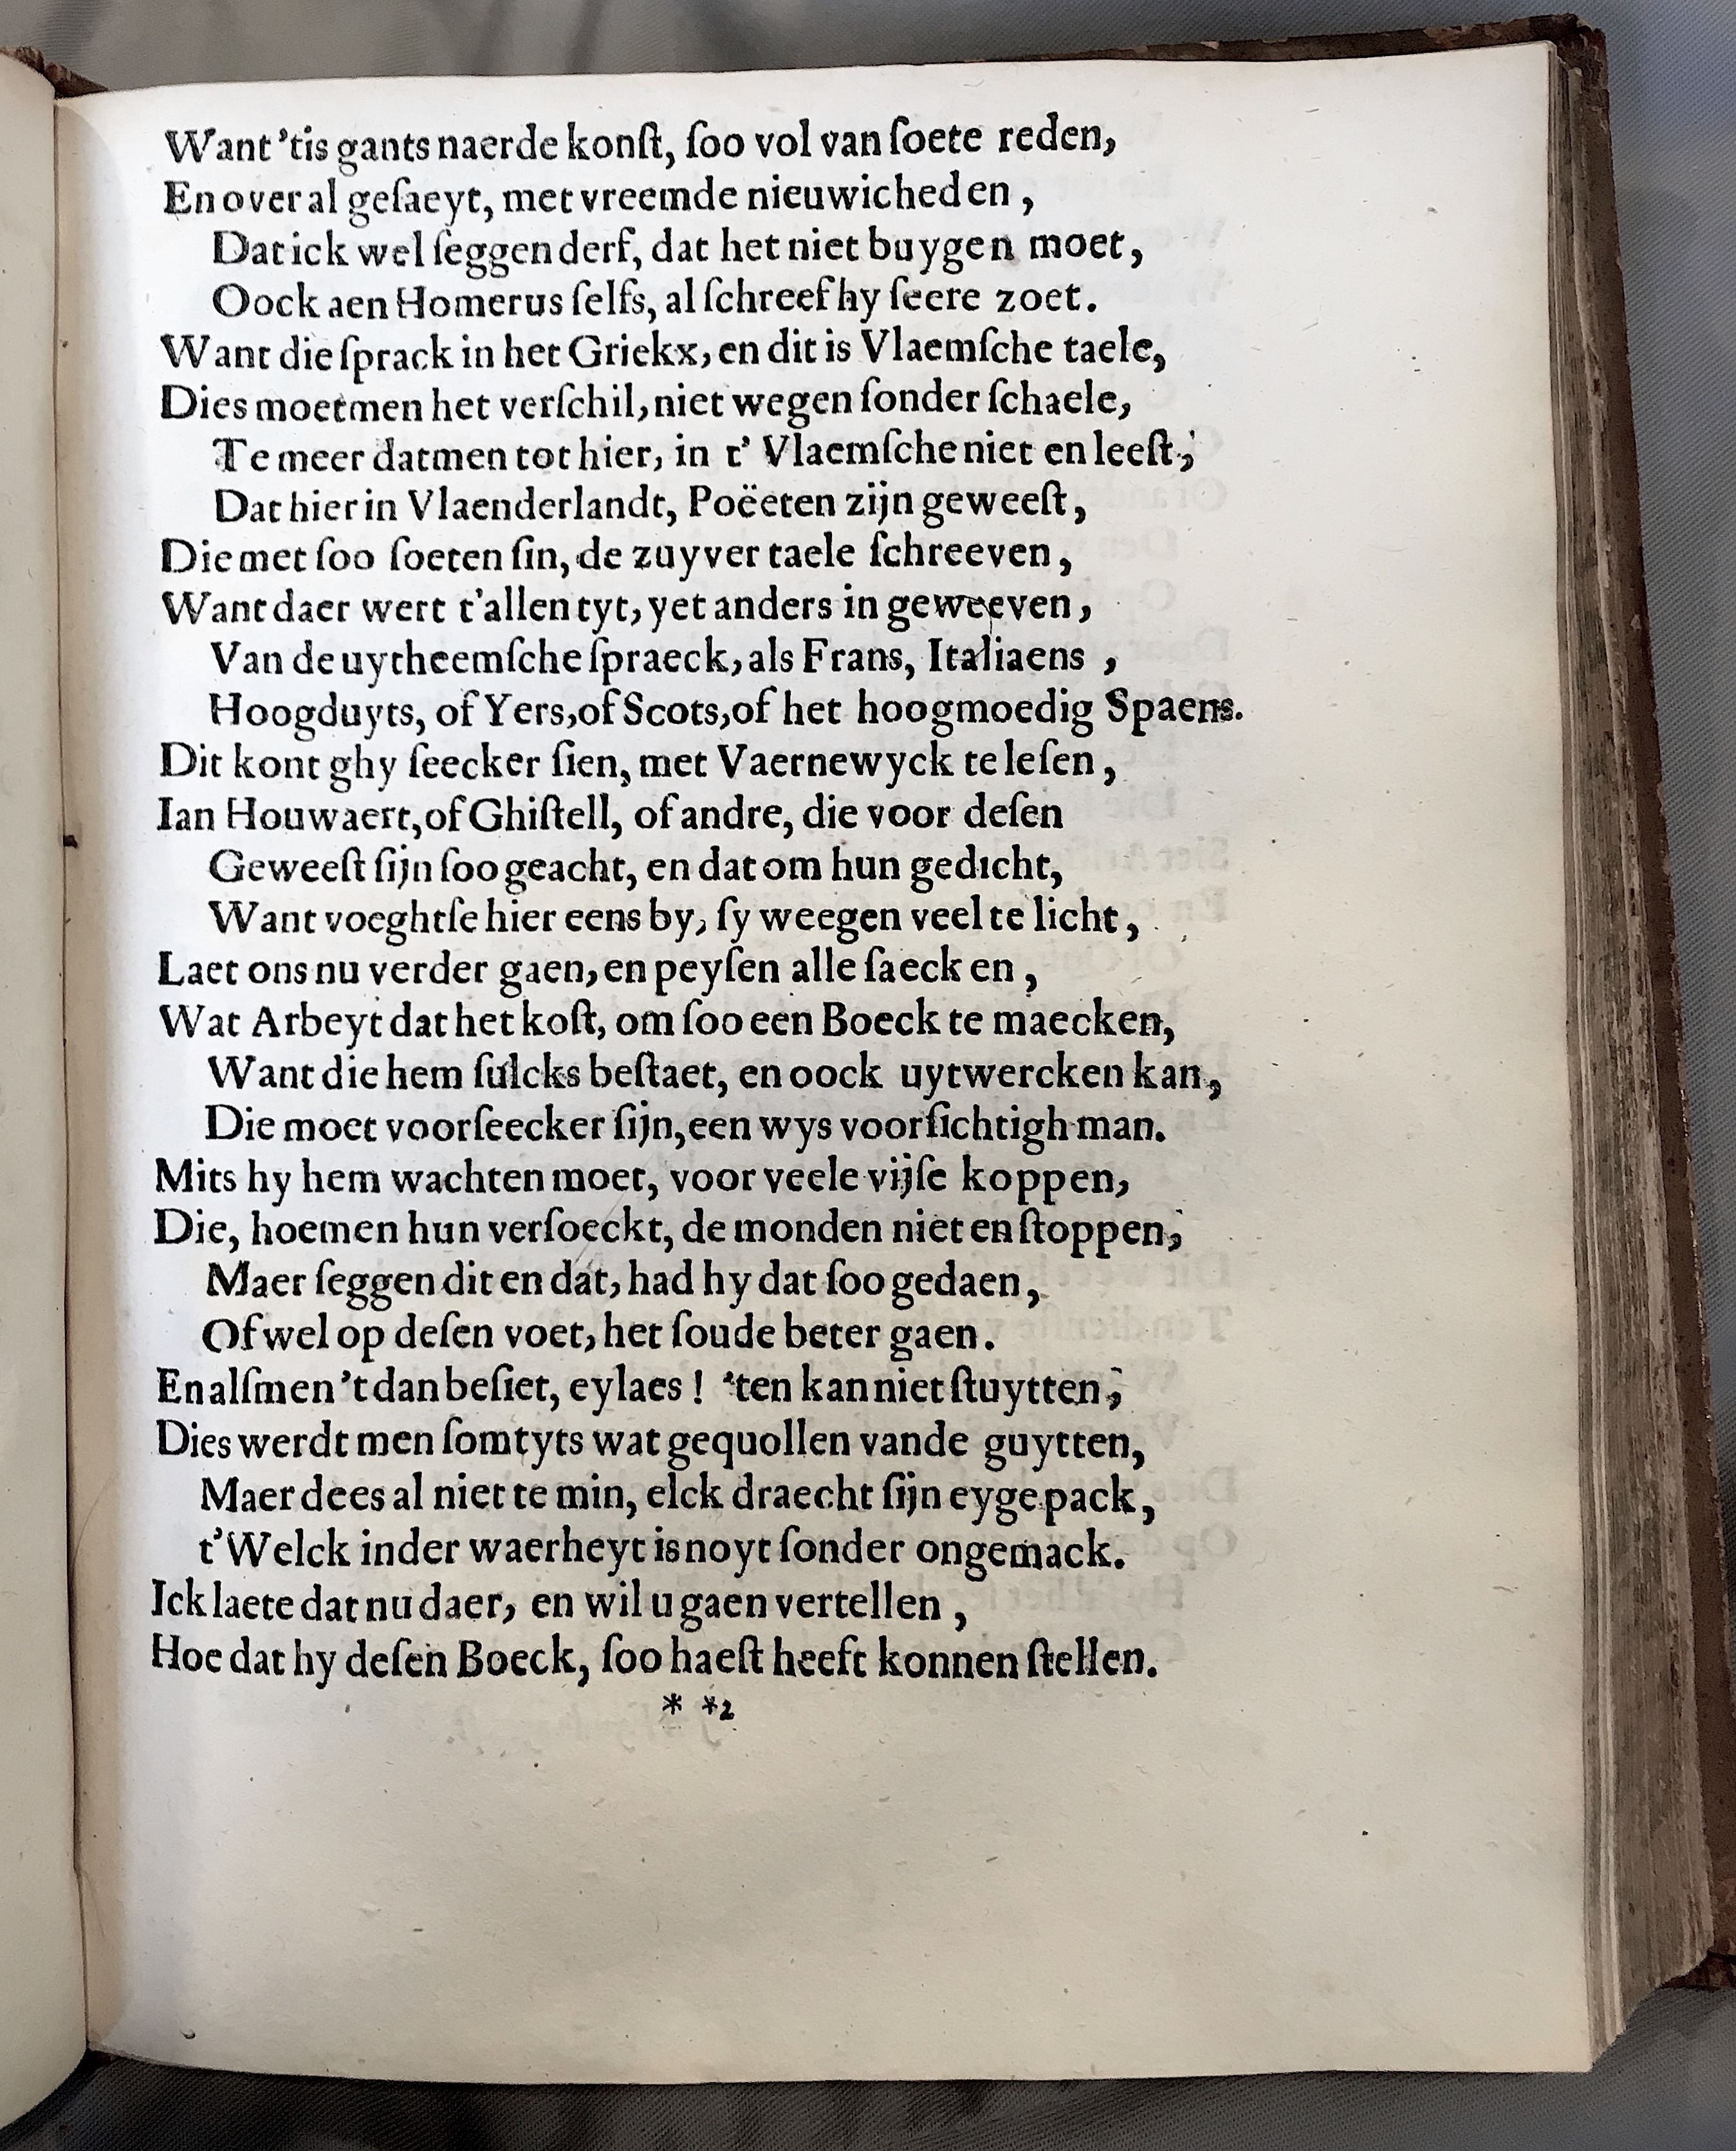 Want ’tis gants naer de konſt, ſoo vol van ſoete reden,
En over al geſaeyt, met vreemde nieuwicheden ,
Dat ick wel ſeggen derf, dat het niet buygen moet,
Oock aen Homerus ſelfs, al ſchreef hy ſeere zoet.
Want die ſprack in het Griekx, en dit is Vlaemſche taele,
Dies moetmen het verſchil, niet wegen ſonder ſchaele,
Te meer datmen tot hier, in t’ Vlaemſche niet en leeſt,
Dat hier in Vlaenderlandt, Poëeten zijn geweeſt,
Die met ſoo ſoeten ſin, de zuyver taele ſchreeven,
Want daer wert t’allen tyt, yet anders in geweeven,
Van de uytheemſche ſpraeck, als Frans, Italiaens ,
Hoogduyts, of Yers, of Scots, of het hoogmoedig Spaens.
Dit kont ghy ſeecker ſien, met Vaernewyck te leſen ,
Ian Houwaert, of Ghiſtell, of andre, die voor deſen
Geweeſt ſijn ſoo geacht, en dat om hun gedicht,
Want voeghtſe hier eens by, ſy weegen veel te licht ,
Laet ons nu verder gaen, en peyſen alle ſaecken ,
Wat Arbeyt dat het koſt, om ſoo een Boeck te maecken,
Want die hem ſulcks beſtaet, en oock uytwercken kan,
Die moet voorſeecker ſijn, een wys voorſichtigh man.
Mits hy hem wachten moet, voor veele vijſe koppen,
Die, hoemen hun verſoeckt, de monden niet en ſtoppen,
Maer ſeggen dit en dat, had hy dat ſoo gedaen,
Of wel op deſen voet, het ſoude beter gaen.
En alſmen ’t dan beſiet, eylaes ! ’ten kan niet ſtuytten,
Dies werdt men ſomtyts wat gequollen vande guytten,
Maer dees al niet te min, elck draecht ſijn eyge pack,
t’Welck inder waerheyt is noyt ſonder ongemack.
Ick laete dat nu daer, en wil u gaen vertellen ,
Hoe dat hy deſen Boeck, ſoo haeſt heeft konnen ſtellen.
* *2